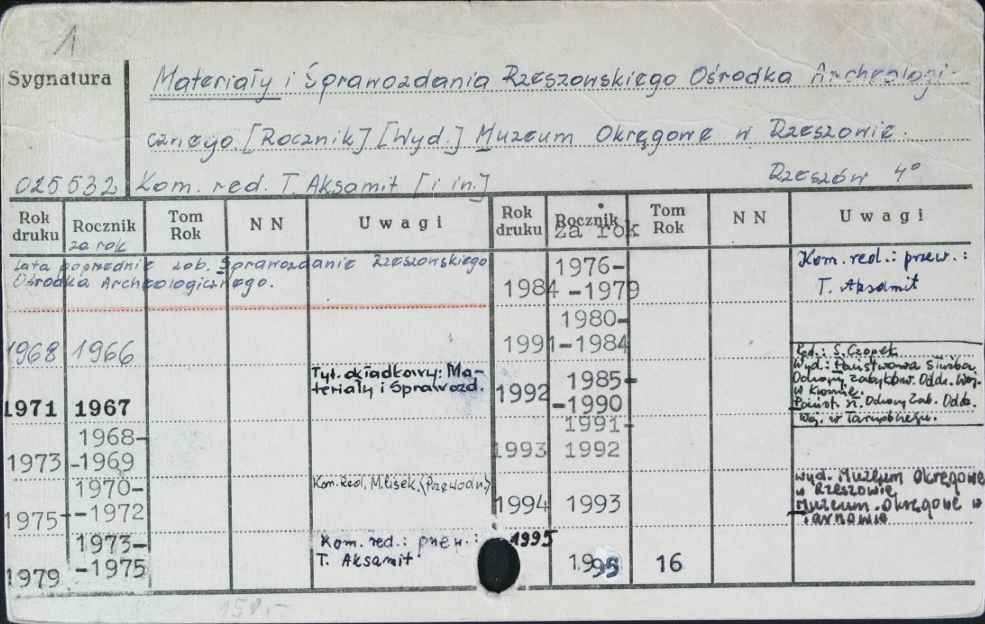 1
Sygnatura
Materiały i Sprawozdania Rzeszowskiego Ośrodka Archeologi-
cznego [Rocznik] [Wyd.] Muzeum Okręgowe w Rzeszowie.
025532 Kom. red. T. Aksamit [i in.] Rzeszów 4°
Rok druku Rocznik za rok Tom Rok N N U w a g i Rok druku Rocznik za rok Tom Rok N N U w a g i
Lata poprzednie zob. Sprawozdanie Rzeszowskiego
Ośrodka Archeologicznego.
1968 1966
1971 1967 Tyt. okładkowy: Ma-
teriały i Sprawozd.
1973 1968-
-1969
1975 1970-
-1972 Kom. Red. M. Lisek (Przewodn)
1979 1973-
-1975 Kom. red.: przew.:
T. Aksamit
1984 1976-
-1979 Kom. red.: przew.:
T. Aksamit
1991 1980-
-1984
1992 1985-
-1990
Red.: S. Czopek
Wyd.: Państwowa Służba
Ochrony Zabytków. Oddz. Woj.
w Krośnie.
Państ. Sł. Ochrony Zab. Oddz.
Woj. w Tarnobrzegu.
1993 1991-
1992
1994 1993 wyd. Muzeum Okręgowe
w Rzeszowie
Muzeum Okręgowe w
Tarnowie
1995 1995 16
150,-